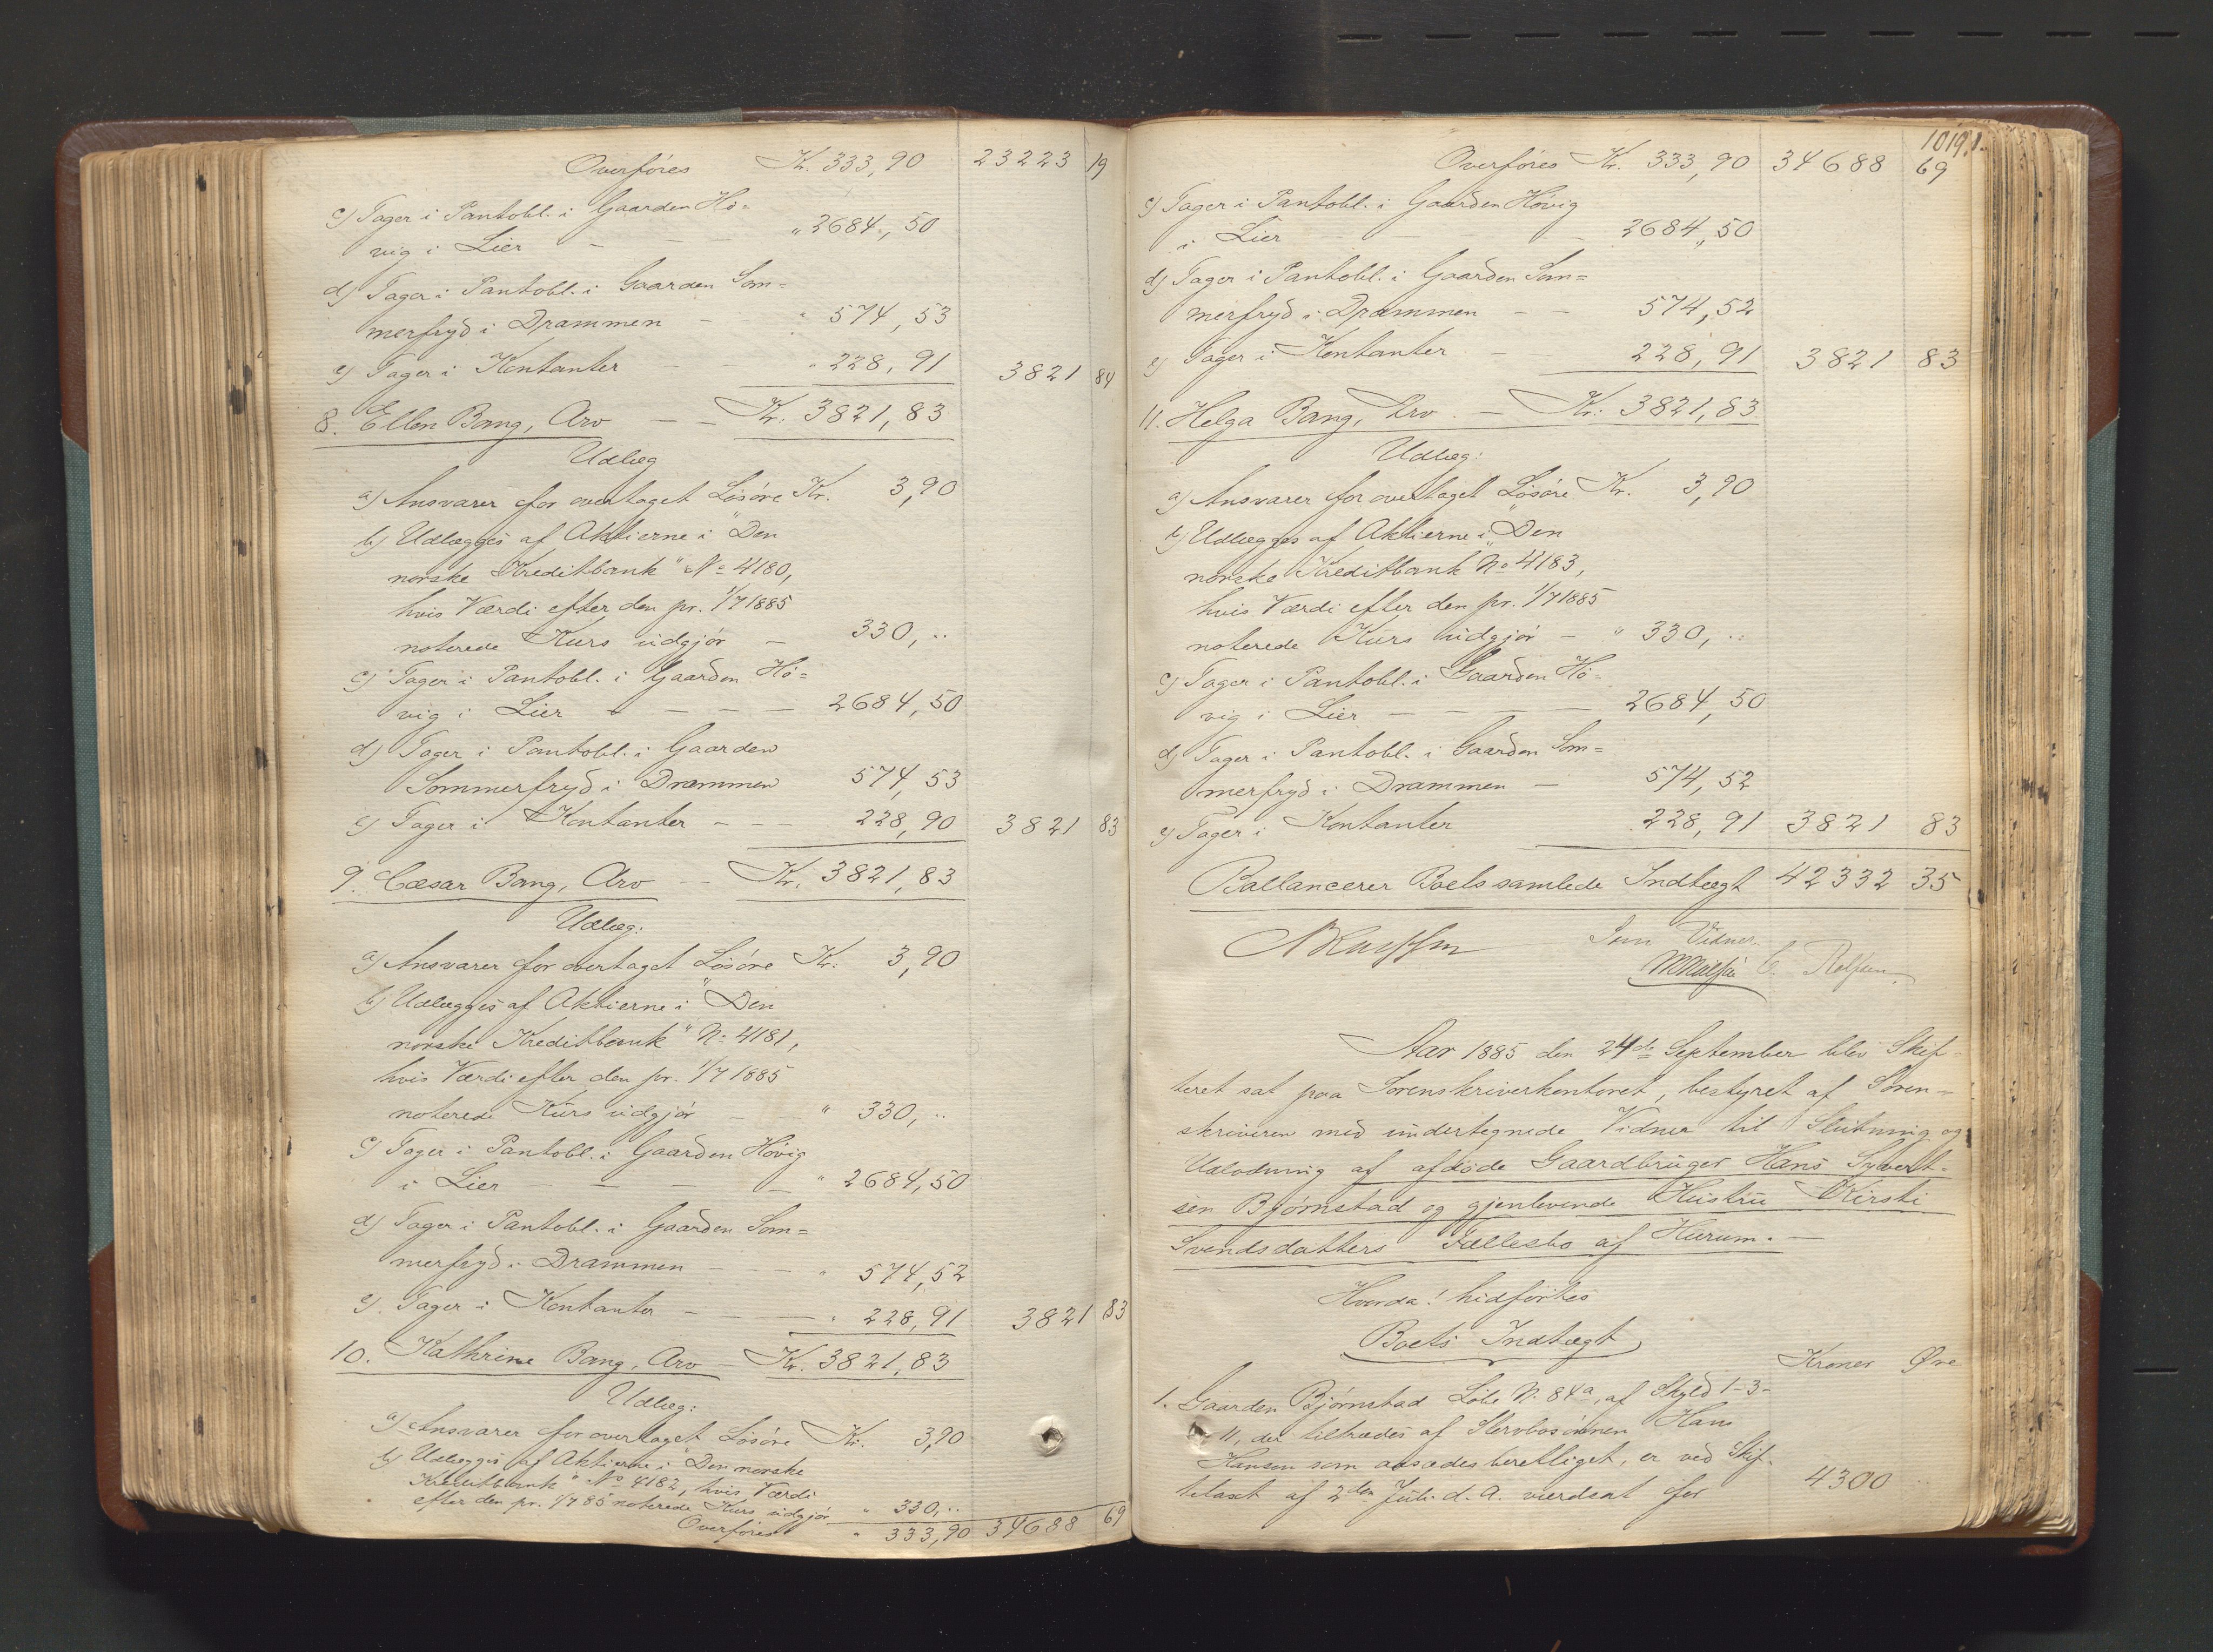 Overføres Kr. 333,90 23223 19
c) Tager i Pantobl. i Gaarden Hö=
vig i Lier — — — " 2684,50
d) Tager i Pantobl. i Gaarden Som=
merfryd i Drammen — " 574,53
e) Tager i Kontanter — — " 228,91 3821 84
8. Ellen Bang, Arv — — Kr. 3821,83
Udlæg
a) Ansvarer for overtaget Lösöre Kr. 3,90
b) Udlægges af Aktierne i "Den
norske Kreditbank" No 4180,
hvis Værdi efter den pr. 1/7 1885
noterede Kurs udgjör — 330,..
c) Tager i Pantobl. i Gaarden Hö=
vig i Lier — — — — 2684,50
d) Tager i Pantobl. i Gaarden
Sommerfryd i Drammen 574,53
e) Tager i Kontanter — — — 228,90 3821 83
9. Cæsar Bang, Arv — Kr. 3821,83
Udlæg:
a) Ansvarer for overtaget Lösöre Kr. 3,90
b) Udlægges af Aktierne i "Den
norske Kreditbank" No 4181,
hvis Værdi efter den pr. 1/7 1885
noterede Kurs udgjör — " 330,..
c) Tager i Pantobl. i Gaarden Hövig
i Lier — — — — " 2684,50
d) Tager i Pantobl. i Gaarden Som=
merfryd i Drammen — — — " 574,52
e) Tager i Kontanter — — " 228,91 3821 83
10. Kathrine Bang, Arv — Kr. 3821,83
Udlæg:
a) Ansvarer for overtaget Lösöre Kr. 3,90
b) Udlægges af Aktierne i "Den norske
Kreditbank" No 4182, hvis Værdi
efter den pr. 1/7 85 noterede Kurs udgjör " 330,..
Overføres " 333,90 34688 69
1019.
Overføres Kr. 333,90 34688 69
c) Tager i Pantobl. i Gaarden Hövig
i Lier — — — — 2684,50
d) Tager i Pantobl. i Gaarden Som=
merfryd i Drammen — — 574,52
e) Tager i Kontanter — 228,91 3821 83
11. Helga Bang, Arv. — Kr. 3821,83
Udlæg:
a) Ansvarer for overtaget Lösöre Kr. 3,90
b) Udlægges af Aktierne i "Den
norske Kreditbank" No 4183,
hvis Værdi efter den pr. 1/7 1885
noterede Kurs udgjör — " 330,..
c) Tager i Pantobl. i Gaarden Hö=
vig i Lier — — — — 2684,50
d) Tager i Pantobl. i Gaarden Som=
merfryd i Drammen — 574,52
e) Tager i Kontanter 228,91 3821 83
Ballancerer Boets samlede Indtægt 42332 35
Som Vidner.
C. Rolfsen
Aar 1885 den 24de September blev Skif-
teret sat paa Sorenskriverkontoret, bestyret af Soren-
skriveren med undertegnede Vidner til Slutning og
Udlodning af afdöde Gaardbruger Hans Syvert-
sen Bjørnstad og gjenlevende Hustru Kirsti
Svendsdatters Fællesbo af Hurum. —
Hvorda! hidførtes
Boets Indtægt
Kroner Øre
1. Gaarden Bjørnstad Löbe No. 84a, af Skyld 1-3-
11, der tiltrædes af Stervbosönnen Hans
Hansen som aasædesberettiget, er ved Skif-
tetaxt af 2den Juli d. A. værdsat for 4300 ..